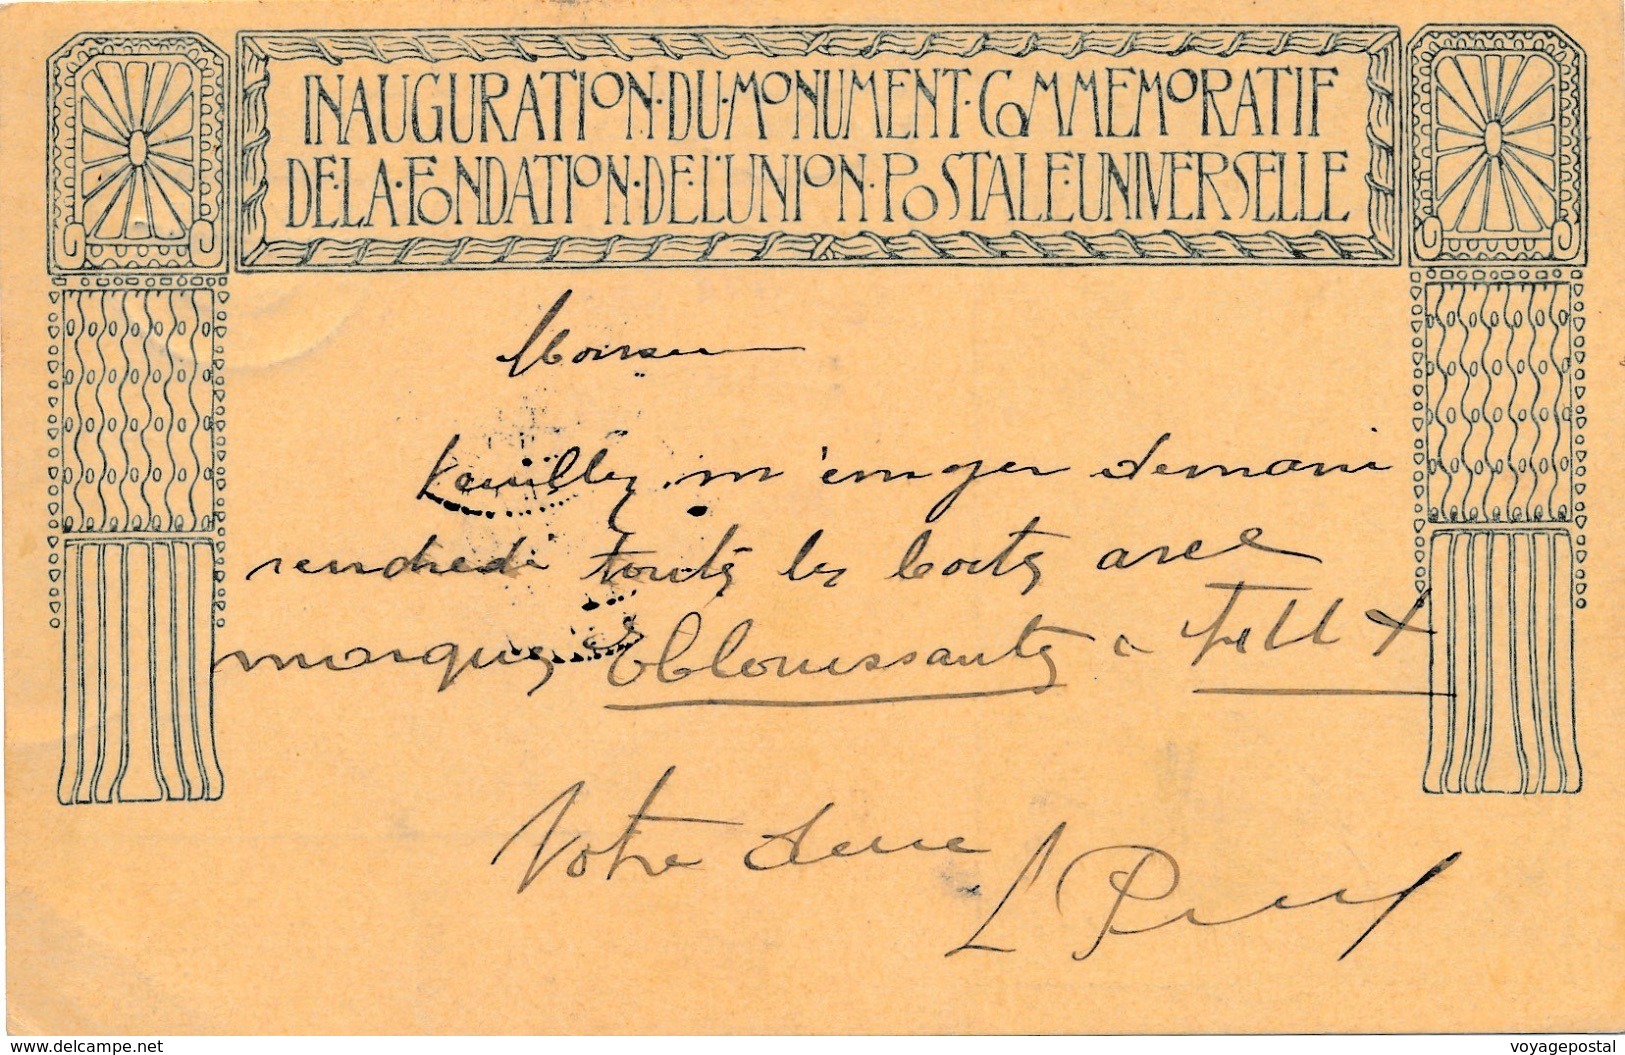 INAUGURATION·DU·MONUMENT·COMMEMORATIF
DE·LA·FONDATION·DE·L'UNION·POSTALE·UNIVERSELLE
Monsieur
Veuillez m'envoyer demain
vendredi toutes les boites avec
marques Eblouissantes a
Votre
L
www.delcampe.net
voyagepostal